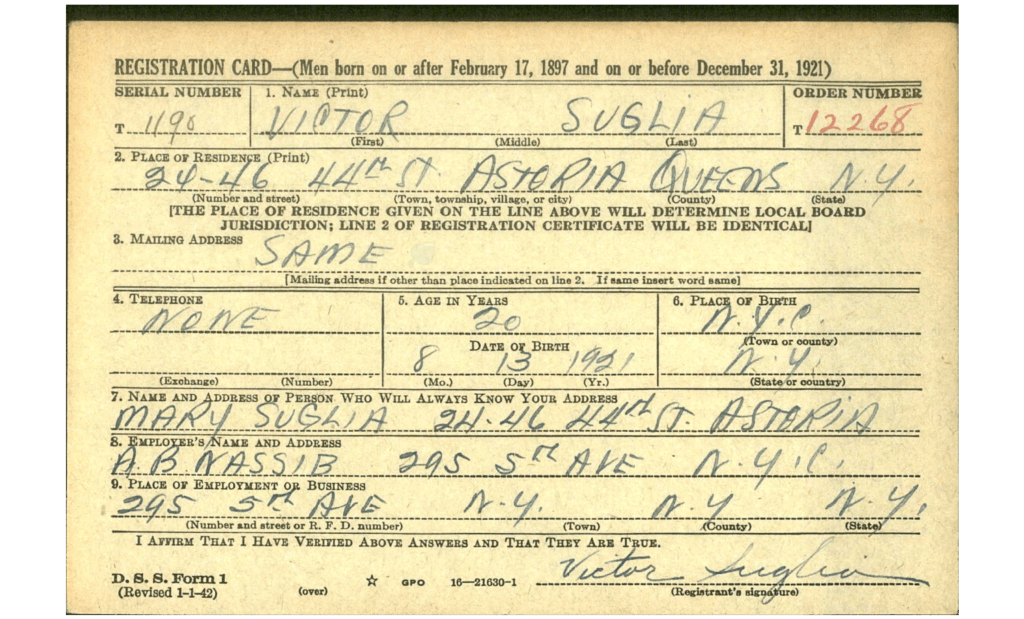 REGISTRATION CARD—(Men born on or after February 17, 1897 and on or before December 31, 1921)
SERIAL NUMBER 1. NAME (Print) ORDER NUMBER
T 1190 VICTOR SUGLIA T 12268
(First) (Middle) (Last)
2. PLACE OF RESIDENCE (Print)
24-46 44TH ST. ASTORIA QUEENS N.Y.
(Number and street) (Town, township, village, or city) (County) (State)
[THE PLACE OF RESIDENCE GIVEN ON THE LINE ABOVE WILL DETERMINE LOCAL BOARD
JURISDICTION; LINE 2 OF REGISTRATION CERTIFICATE WILL BE IDENTICAL]
3. MAILING ADDRESS
SAME
[Mailing address if other than place indicated on line 2. If same insert word same]
4. TELEPHONE 5. AGE IN YEARS 6. PLACE OF BIRTH
NONE 20 N.Y.C.
DATE OF BIRTH (Town or county)
8 13 1921 N.Y.
(Exchange) (Number) (Mo.) (Day) (Yr.) (State or country)
7. NAME AND ADDRESS OF PERSON WHO WILL ALWAYS KNOW YOUR ADDRESS
MARY SUGLIA 24-46 44TH ST. ASTORIA
8. EMPLOYER'S NAME AND ADDRESS
A.B NASSIB 295 5TH AVE N.Y.C.
9. PLACE OF EMPLOYMENT OR BUSINESS
295 5TH AVE N.Y. N.Y N.Y.
(Number and street or R. F. D. number) (Town) (County) (State)
I AFFIRM THAT I HAVE VERIFIED ABOVE ANSWERS AND THAT THEY ARE TRUE.
Victor Suglia
D. S. S. Form 1
(Revised 1-1-42) (over) ☆ GPO 16—21630-1 (Registrant's signature)